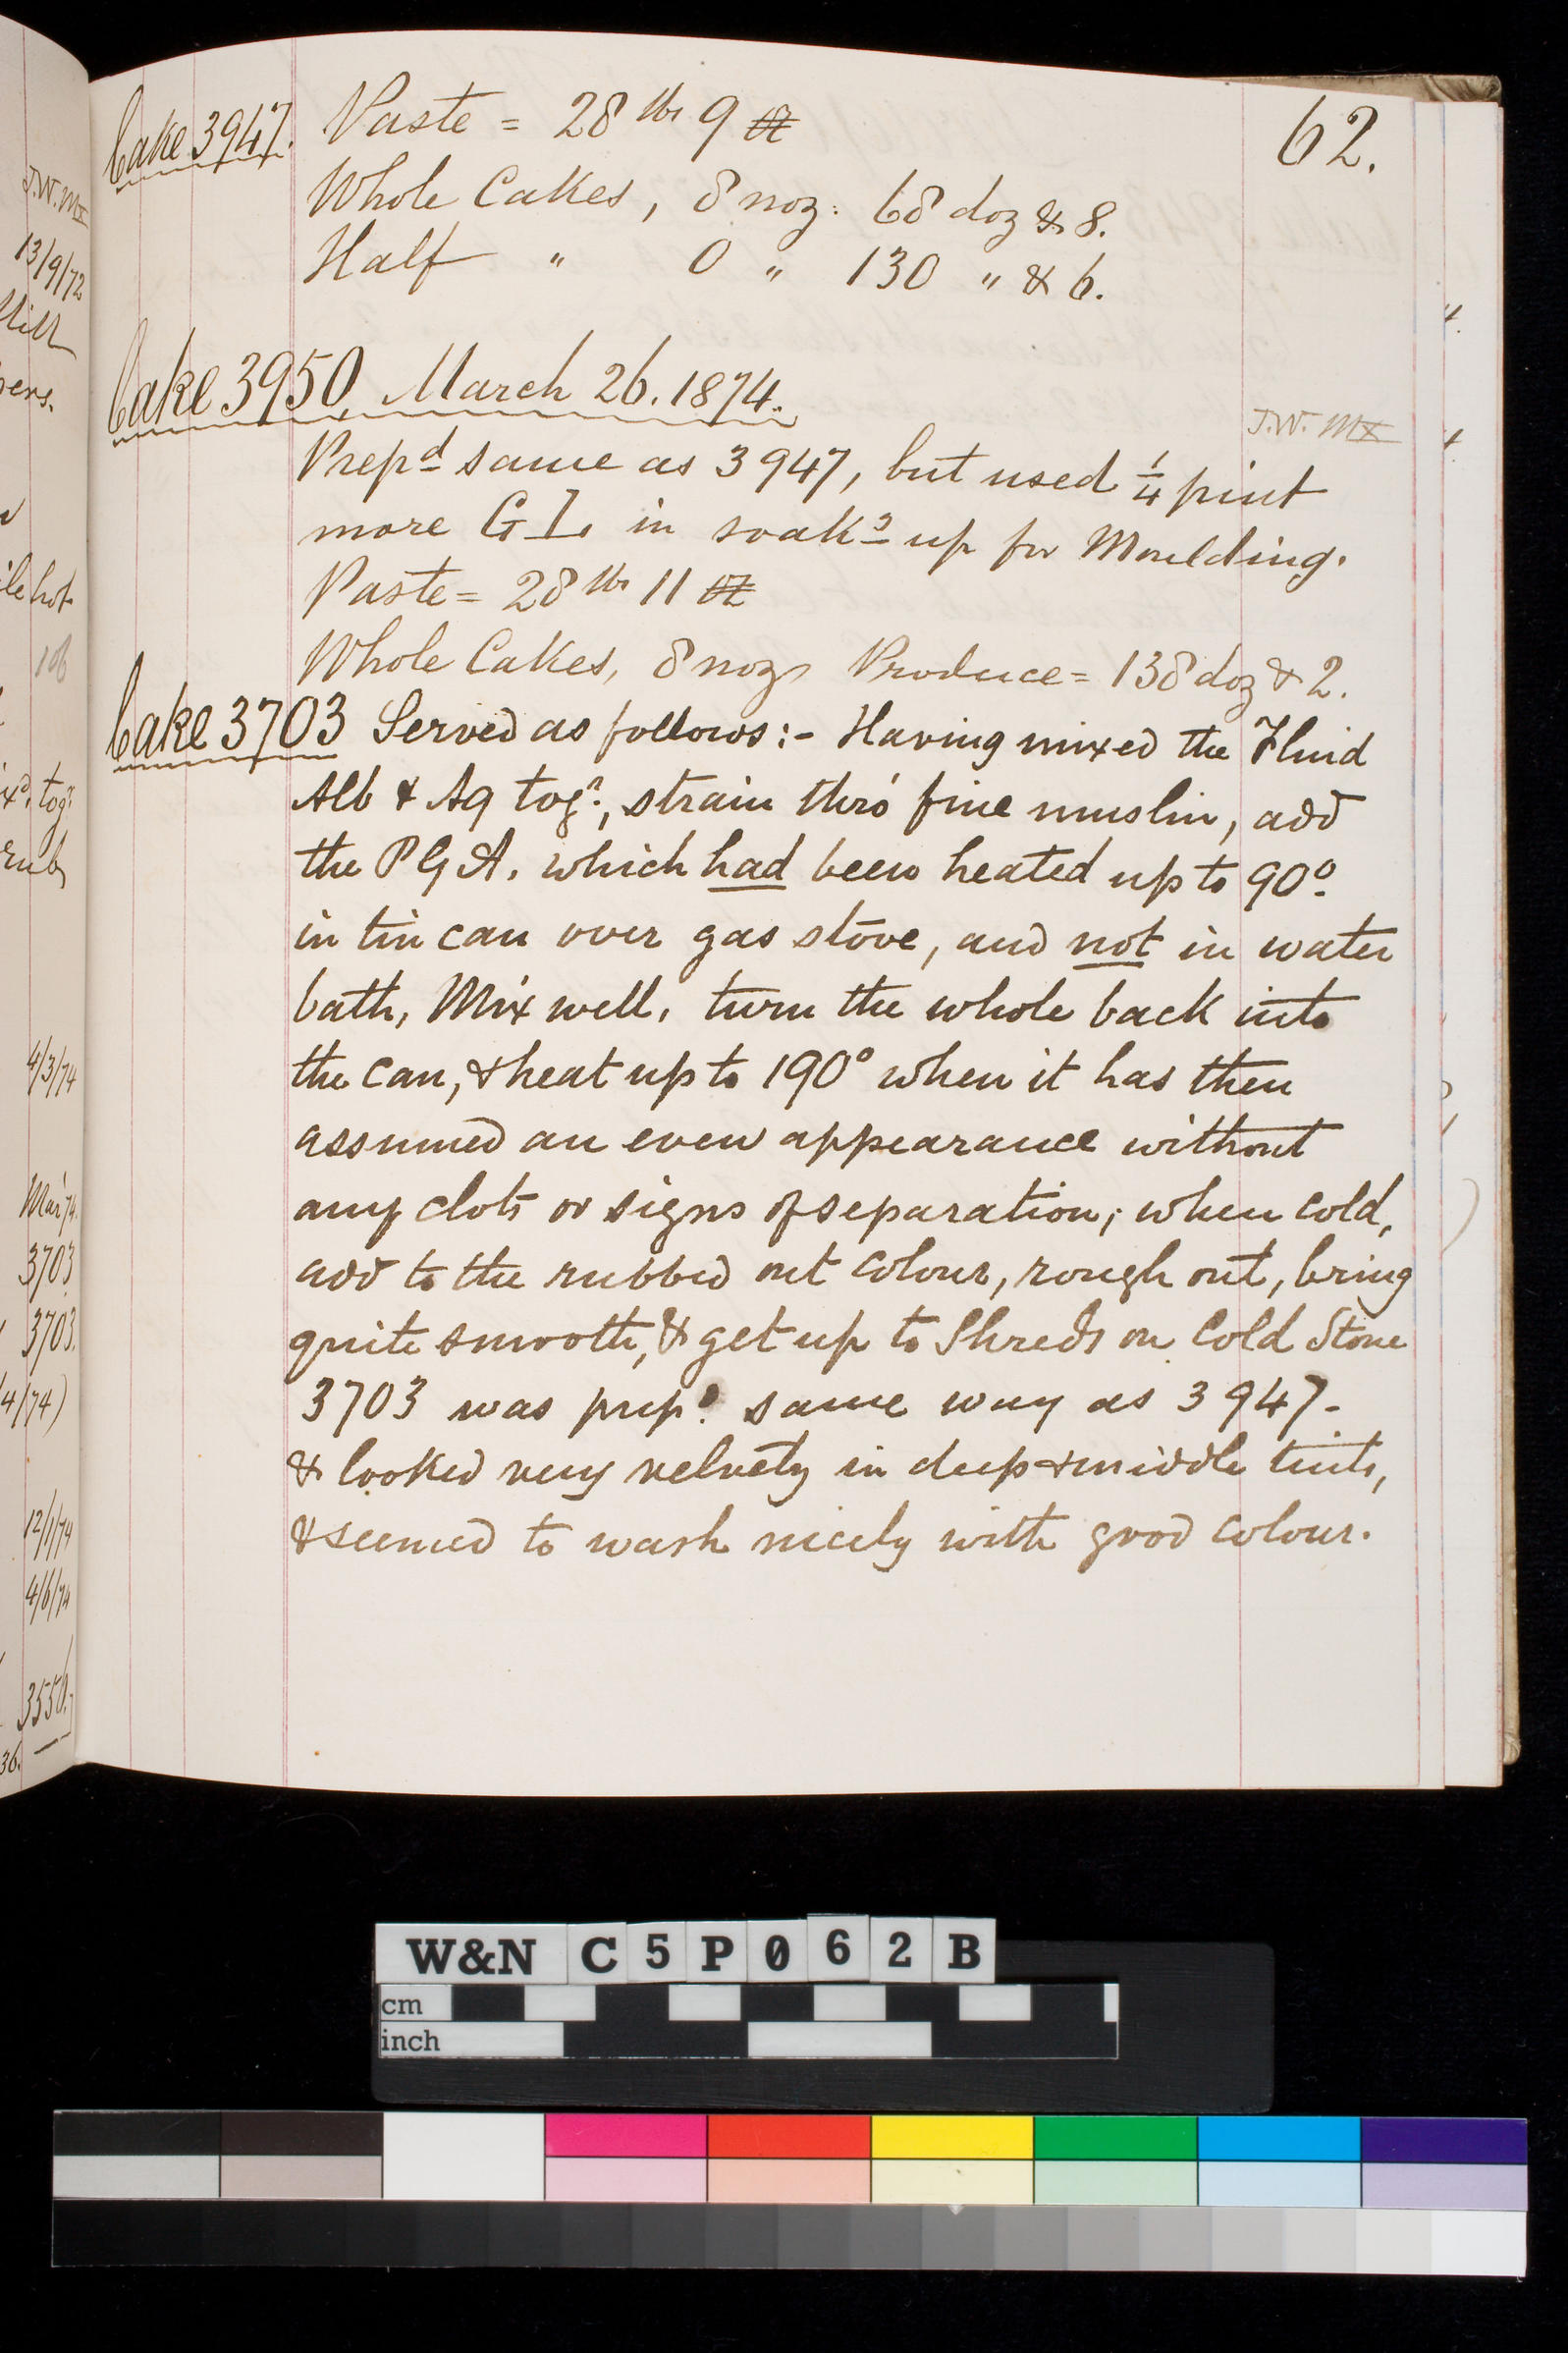 62.
Cake 3947. Paste = 28 lbs 9 oz
Whole Cakes, 8 noz: 68 doz & 8.
Half " 0 " 130 " & 6.
Cake 3950, March 26. 1874.
J.W. MX
Prepd same as 3947, but used 1/4 pint
more G I. in soakg up for Moulding.
Paste = 28 lbs 11 oz
Whole Cakes, 8 nozs Produce = 138 doz & 2.
Cake 3703 Served as follows:- Having mixed the Fluid
Alb & Aq togr., strain thro' fine muslin, add
the P G A. which had been heated up to 90°.
in tin can over gas stove, and not in water
bath, Mix well, turn the whole back into
the can, & heat up to 190° when it has then
assumed an even appearance without
any clots or signs of separation; when cold,
add to the rubbed out colour, rough out, bring
quite smooth, & get up to Shreds on Cold Stone
3703 was prepd. same way as 3947-
& looked very velvety in deep & middle tints,
& seemed to wash nicely with good colour.
J.W. MX
13/9/72
hot
106
togr.
rub
4/3/74
Mar '74.
3703
3703.
4/74)
12/1/74
4/6/74
3550.
36.
W&N C5P062B
cm
inch